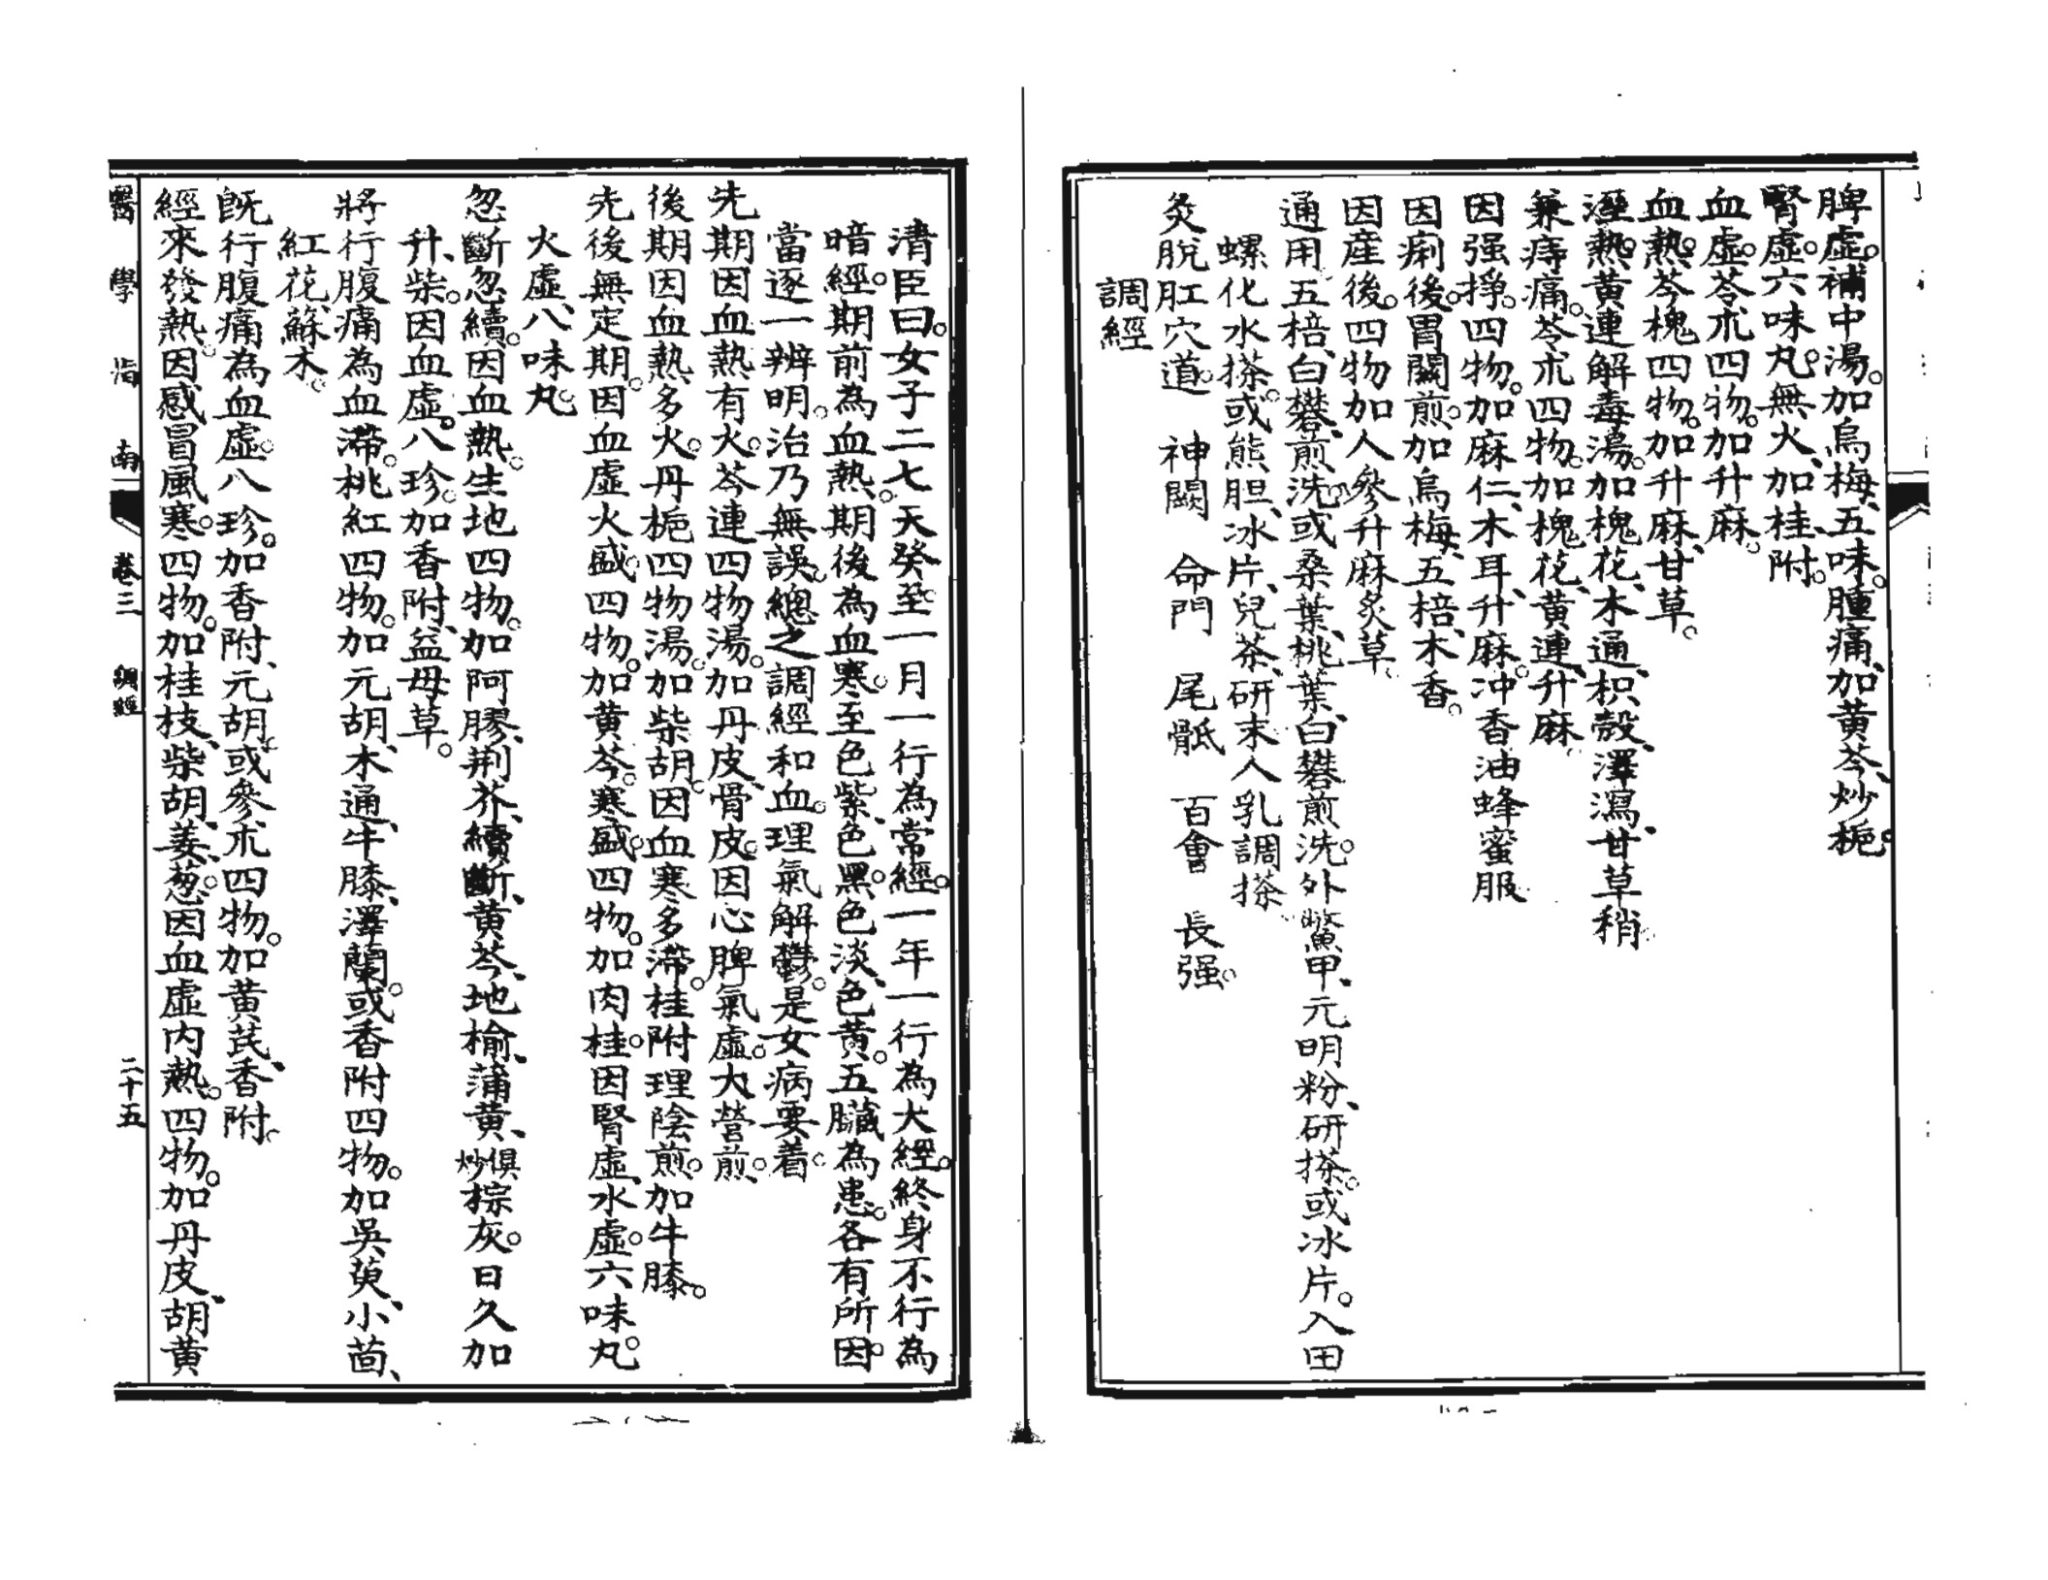 脾虛。補中湯。加烏梅、五味。腫痛、加黄芩、炒梔。
腎虛。六味丸。無火、加桂、附。
血虛。苓朮四物。加升麻。
血熱。芩槐四物。加升麻、甘草。
溼熱。黄連解毒湯。加槐花、木通、枳殼、澤瀉、甘草稍。
兼痔痛。苓朮四物。加槐花、黄連、升麻。
因强掙。四物。加麻仁、木耳、升麻。冲香油蜂蜜服
因痢後。胃關煎。加烏梅、五棓、木香。
因産後。四物加人參升麻炙草。
通用五棓、白礬、煎洗。或桑葉、桃葉、白礬煎洗。外鱉甲、元明粉、研搽。或冰片。入田
螺化水搽。或熊胆、冰片、兒茶、研末人乳調搽。
灸脫肛穴道。 神闕 命門 尾骶 百會 長强。
調經
清臣曰。女子二七天癸至。一月一行為常經。一年一行為大經。終身不行為
暗經。期前為血熱。期後為血寒。至色紫、色黑。色淡、色黄。五臟為患。各有所因。
當逐一辨明。治乃無誤。總之調經和血。理氣解鬱。是女病要着。
先期因血熱有火。芩連四物湯。加丹皮、骨皮。因心脾氣虛。大營煎。
後期因血熱多火。丹梔四物湯。加柴胡。因血寒多滯。桂附理陰煎。加牛膝。
先後無定期。因血虛火盛。四物。加黄芩。寒盛。四物。加肉桂。因腎虛、水虛。六味丸。
火虛、八味丸。
忽斷忽續。因血熱。生地四物。加阿膠、荆芥、續斷、黄芩、地榆、蒲黄、俱炒棕灰。日久加
升、柴。因血虛。八珍。加香附、益母草。
將行腹痛為血滯。桃紅四物。加元胡、木通、牛膝、澤蘭。或香附四物。加吳萸、小茴、
紅花、蘇木。
旣行腹痛為血虛。八珍。加香附、元胡。或參朮四物。加黄芪、香附。
經來發熱。因感冒風寒。四物。加桂枝、柴胡、姜、葱。因血虛内熱。四物。加丹皮、胡黄
醫學指南 卷三 調經 二十五